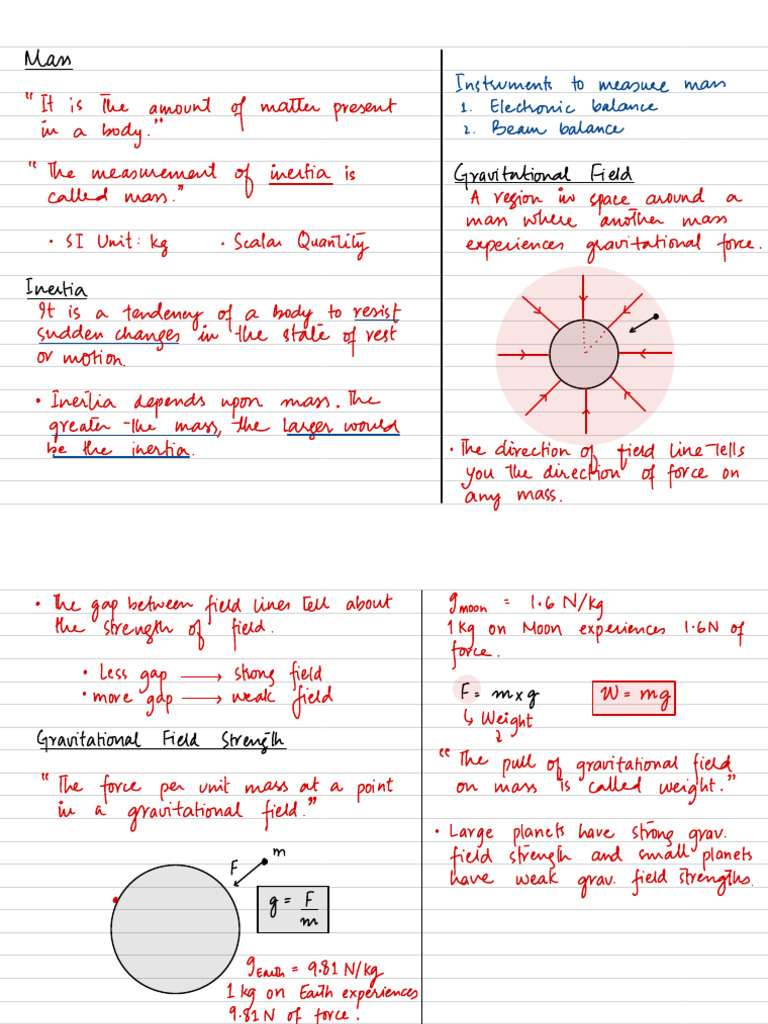 Mass
"It is the amount of matter present
in a body."
"The measurement of inertia is
called mass."
• SI Unit: kg • Scalar Quantity
Inertia
It is a tendency of a body to resist
sudden changes in the state of rest
or motion.
• Inertia depends upon mass. The
greater the mass, the larger would
be the inertia.
Instruments to measure mass
1. Electronic balance
2. Beam balance
Gravitational Field
A region in space around a
mass where another mass
experiences gravitational force.
• The direction of field line tells
you the direction of force on
any mass.
• The gap between field lines tell about
the strength of field.
• Less gap → strong field
• more gap → weak field
Gravitational Field Strength
"The force per unit mass at a point
in a gravitational field."
F m
g = F/m
gEarth = 9.81 N/kg
1 kg on Earth experiences
9.81 N of force.
gmoon = 1.6 N/kg
1 kg on Moon experiences 1.6N of
force.
F = m × g W = mg
↳ Weight
"The pull of gravitational field
on mass is called weight."
• Large planets have strong grav.
field strength and small planets
have weak grav. field strengths.